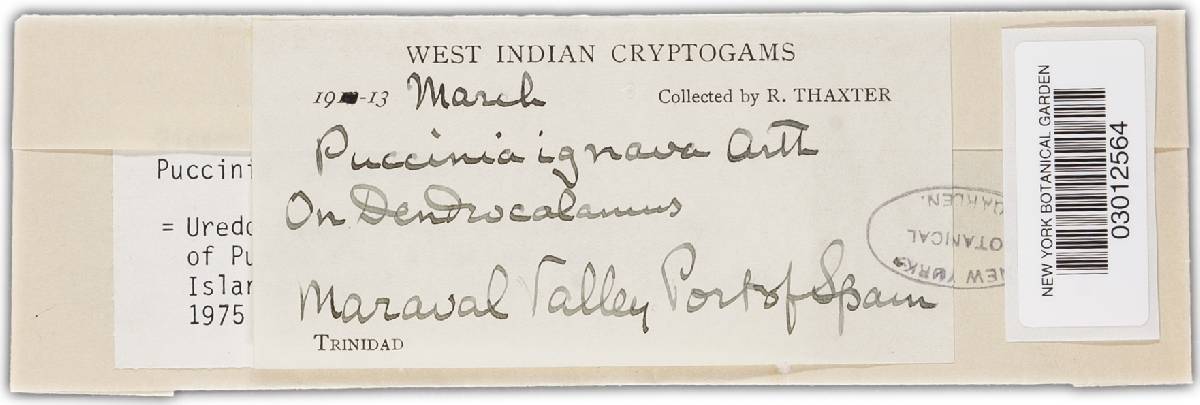 WEST INDIAN CRYPTOGAMS
19 -13 March Collected by R. THAXTER
Puccinia ignava Arth
On Dendrocalamus
Maraval Valley Port of Spain
TRINIDAD
Puccini
= Uredo
of Pu
Islan
1975
NEW YORK BOTANICAL GARDEN
NEW YORK BOTANICAL GARDEN
03012564